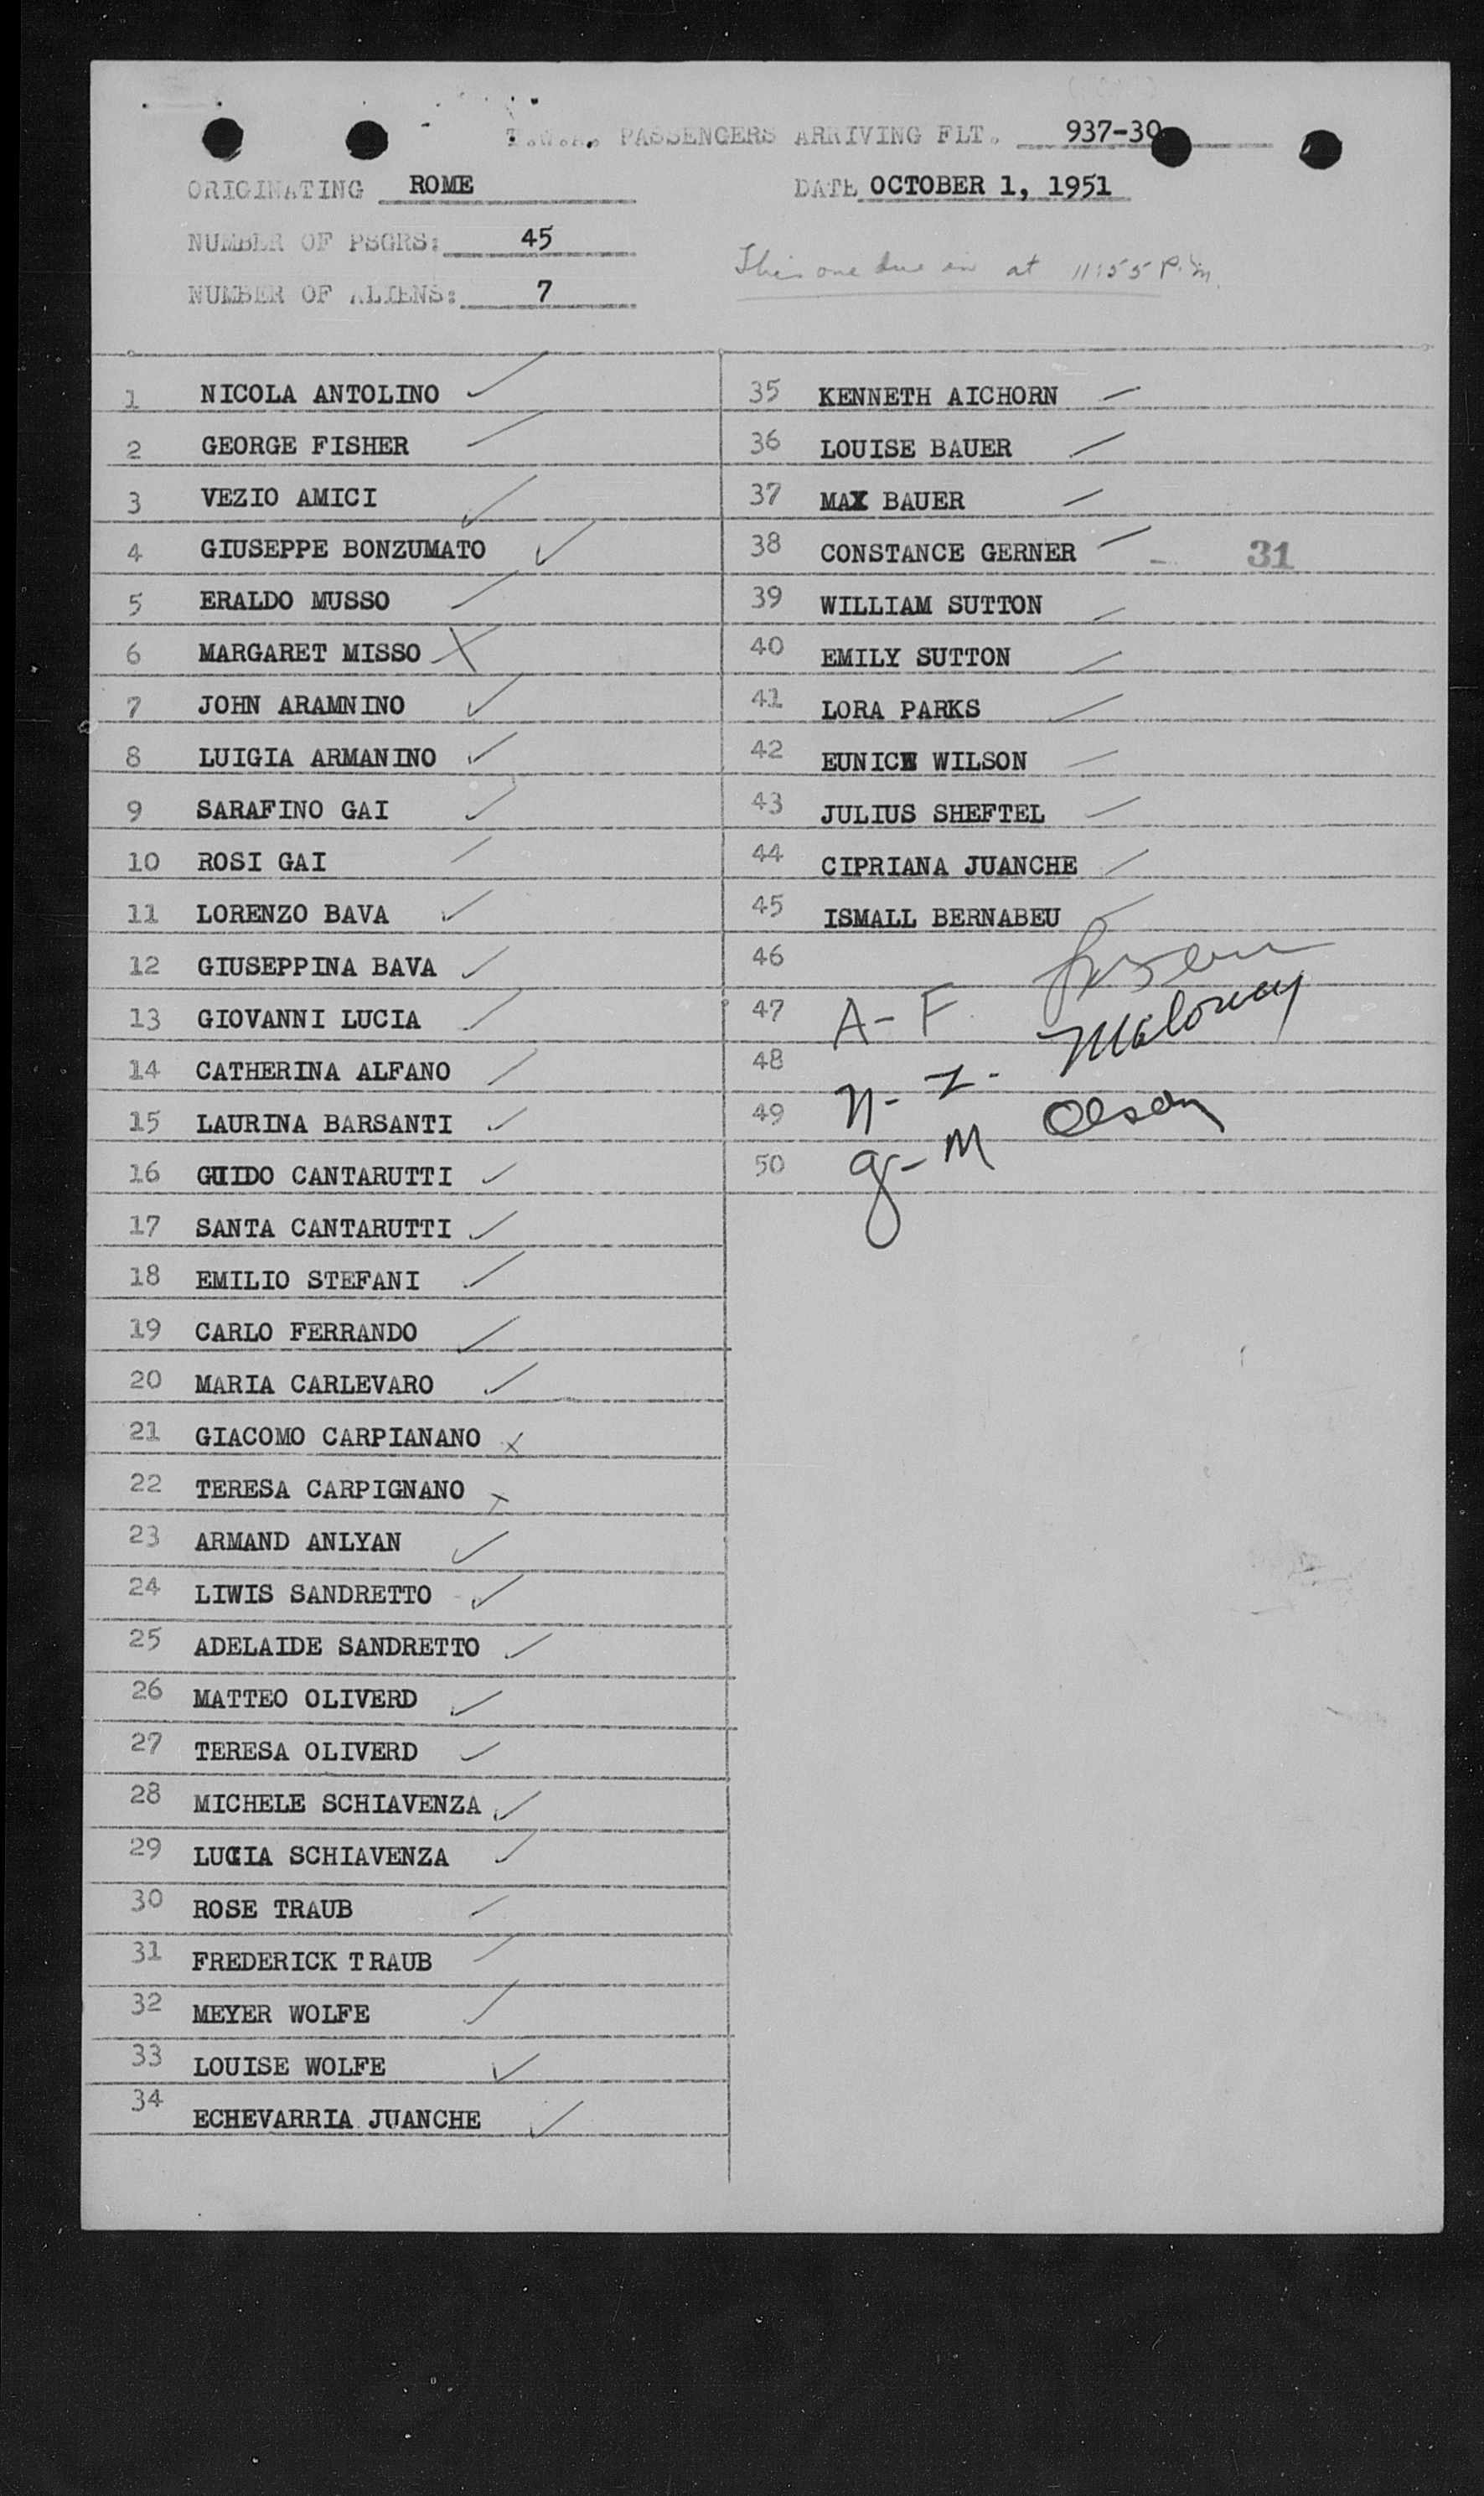 T.W.A. PASSENGERS ARRIVING FLT. 937-30
ORIGINATING ROME
DATE OCTOBER 1, 1951
NUMBER OF PSGRS: 45
This one due in at 11:55 P.M.
NUMBER OF ALIENS: 7
1 NICOLA ANTOLINO
2 GEORGE FISHER
3 VEZIO AMICI
4 GIUSEPPE BONZUMATO
5 ERALDO MUSSO
6 MARGARET MISSO
7 JOHN ARAMNINO
8 LUIGIA ARMANINO
9 SARAFINO GAI
10 ROSI GAI
11 LORENZO BAVA
12 GIUSEPPINA BAVA
13 GIOVANNI LUCIA
14 CATHERINA ALFANO
15 LAURINA BARSANTI
16 GUIDO CANTARUTTI
17 SANTA CANTARUTTI
18 EMILIO STEFANI
19 CARLO FERRANDO
20 MARIA CARLEVARO
21 GIACOMO CARPIANANO
22 TERESA CARPIGNANO
23 ARMAND ANLYAN
24 LIWIS SANDRETTO
25 ADELAIDE SANDRETTO
26 MATTEO OLIVERD
27 TERESA OLIVERD
28 MICHELE SCHIAVENZA
29 LUCIA SCHIAVENZA
30 ROSE TRAUB
31 FREDERICK TRAUB
32 MEYER WOLFE
33 LOUISE WOLFE
34 ECHEVARRIA JUANCHE
35 KENNETH AICHORN
36 LOUISE BAUER
37 MAX BAUER
38 CONSTANCE GERNER 31
39 WILLIAM SUTTON
40 EMILY SUTTON
41 LORA PARKS
42 EUNICE WILSON
43 JULIUS SHEFTEL
44 CIPRIANA JUANCHE
45 ISMALL BERNABEU
46
47 A-F
48 N-Z- Maloney
49 Olson
50 G-M